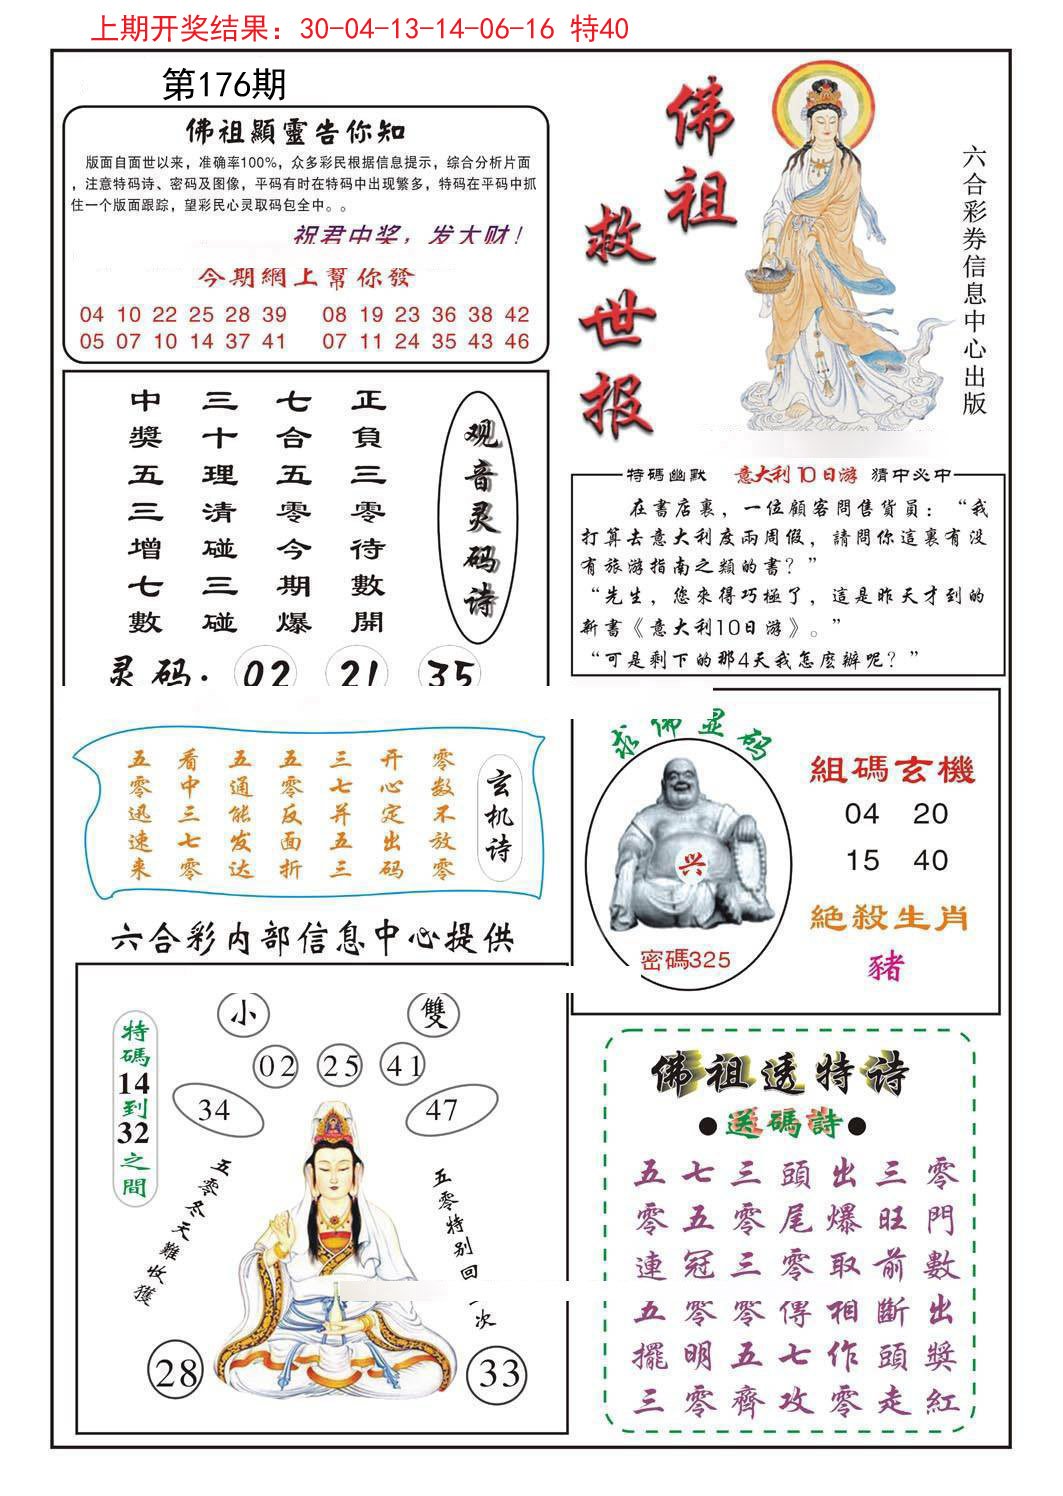 上期开奖结果：30-04-13-14-06-16 特40
第176期
佛祖顯靈告你知
版面自面世以来，准确率100%，众多彩民根据信息提示，综合分析片面
，注意特码诗、密码及图像，平码有时在特码中出现繁多，特码在平码中抓
住一个版面跟踪，望彩民心灵取码包全中。。
祝君中奖，发大财！
今期網上幫你發
04 10 22 25 28 39 08 19 23 36 38 42
05 07 10 14 37 41 07 11 24 35 43 46
佛祖
救世报
六合彩券信息中心出版
观音灵码诗
正負三零待數開
七合五零今期爆
三十理清碰三碰
中獎五三增七數
灵码：02 21 35
特碼幽默 意大利10日游 猜中必中
在書店裏，一位顧客問售貨員：“我
打算去意大利度兩周假，請問你這裏有没
有旅游指南之類的書？”
“先生，您來得巧極了，這是昨天才到的
新書《意大利10日游》。”
“可是剩下的那4天我怎麽辦呢？”
玄机诗
零数不放零
开心定出码
三七并五三
五零反面折
五通能发达
看中三七零
五零迅速来
求佛显码
兴
密碼325
組碼玄機
04 20
15 40
絕殺生肖
豬
六合彩内部信息中心提供
特碼14到32之間
小 雙
02 25 41
34 47
五零冬天難收獲
五零特别回 次
28 33
佛祖透特诗
●送碼詩●
零門數出獎紅
三旺前斷頭走
出爆取相作零
頭尾零傳七攻
三零三零五齊
七五冠零明零
五零連五擺三